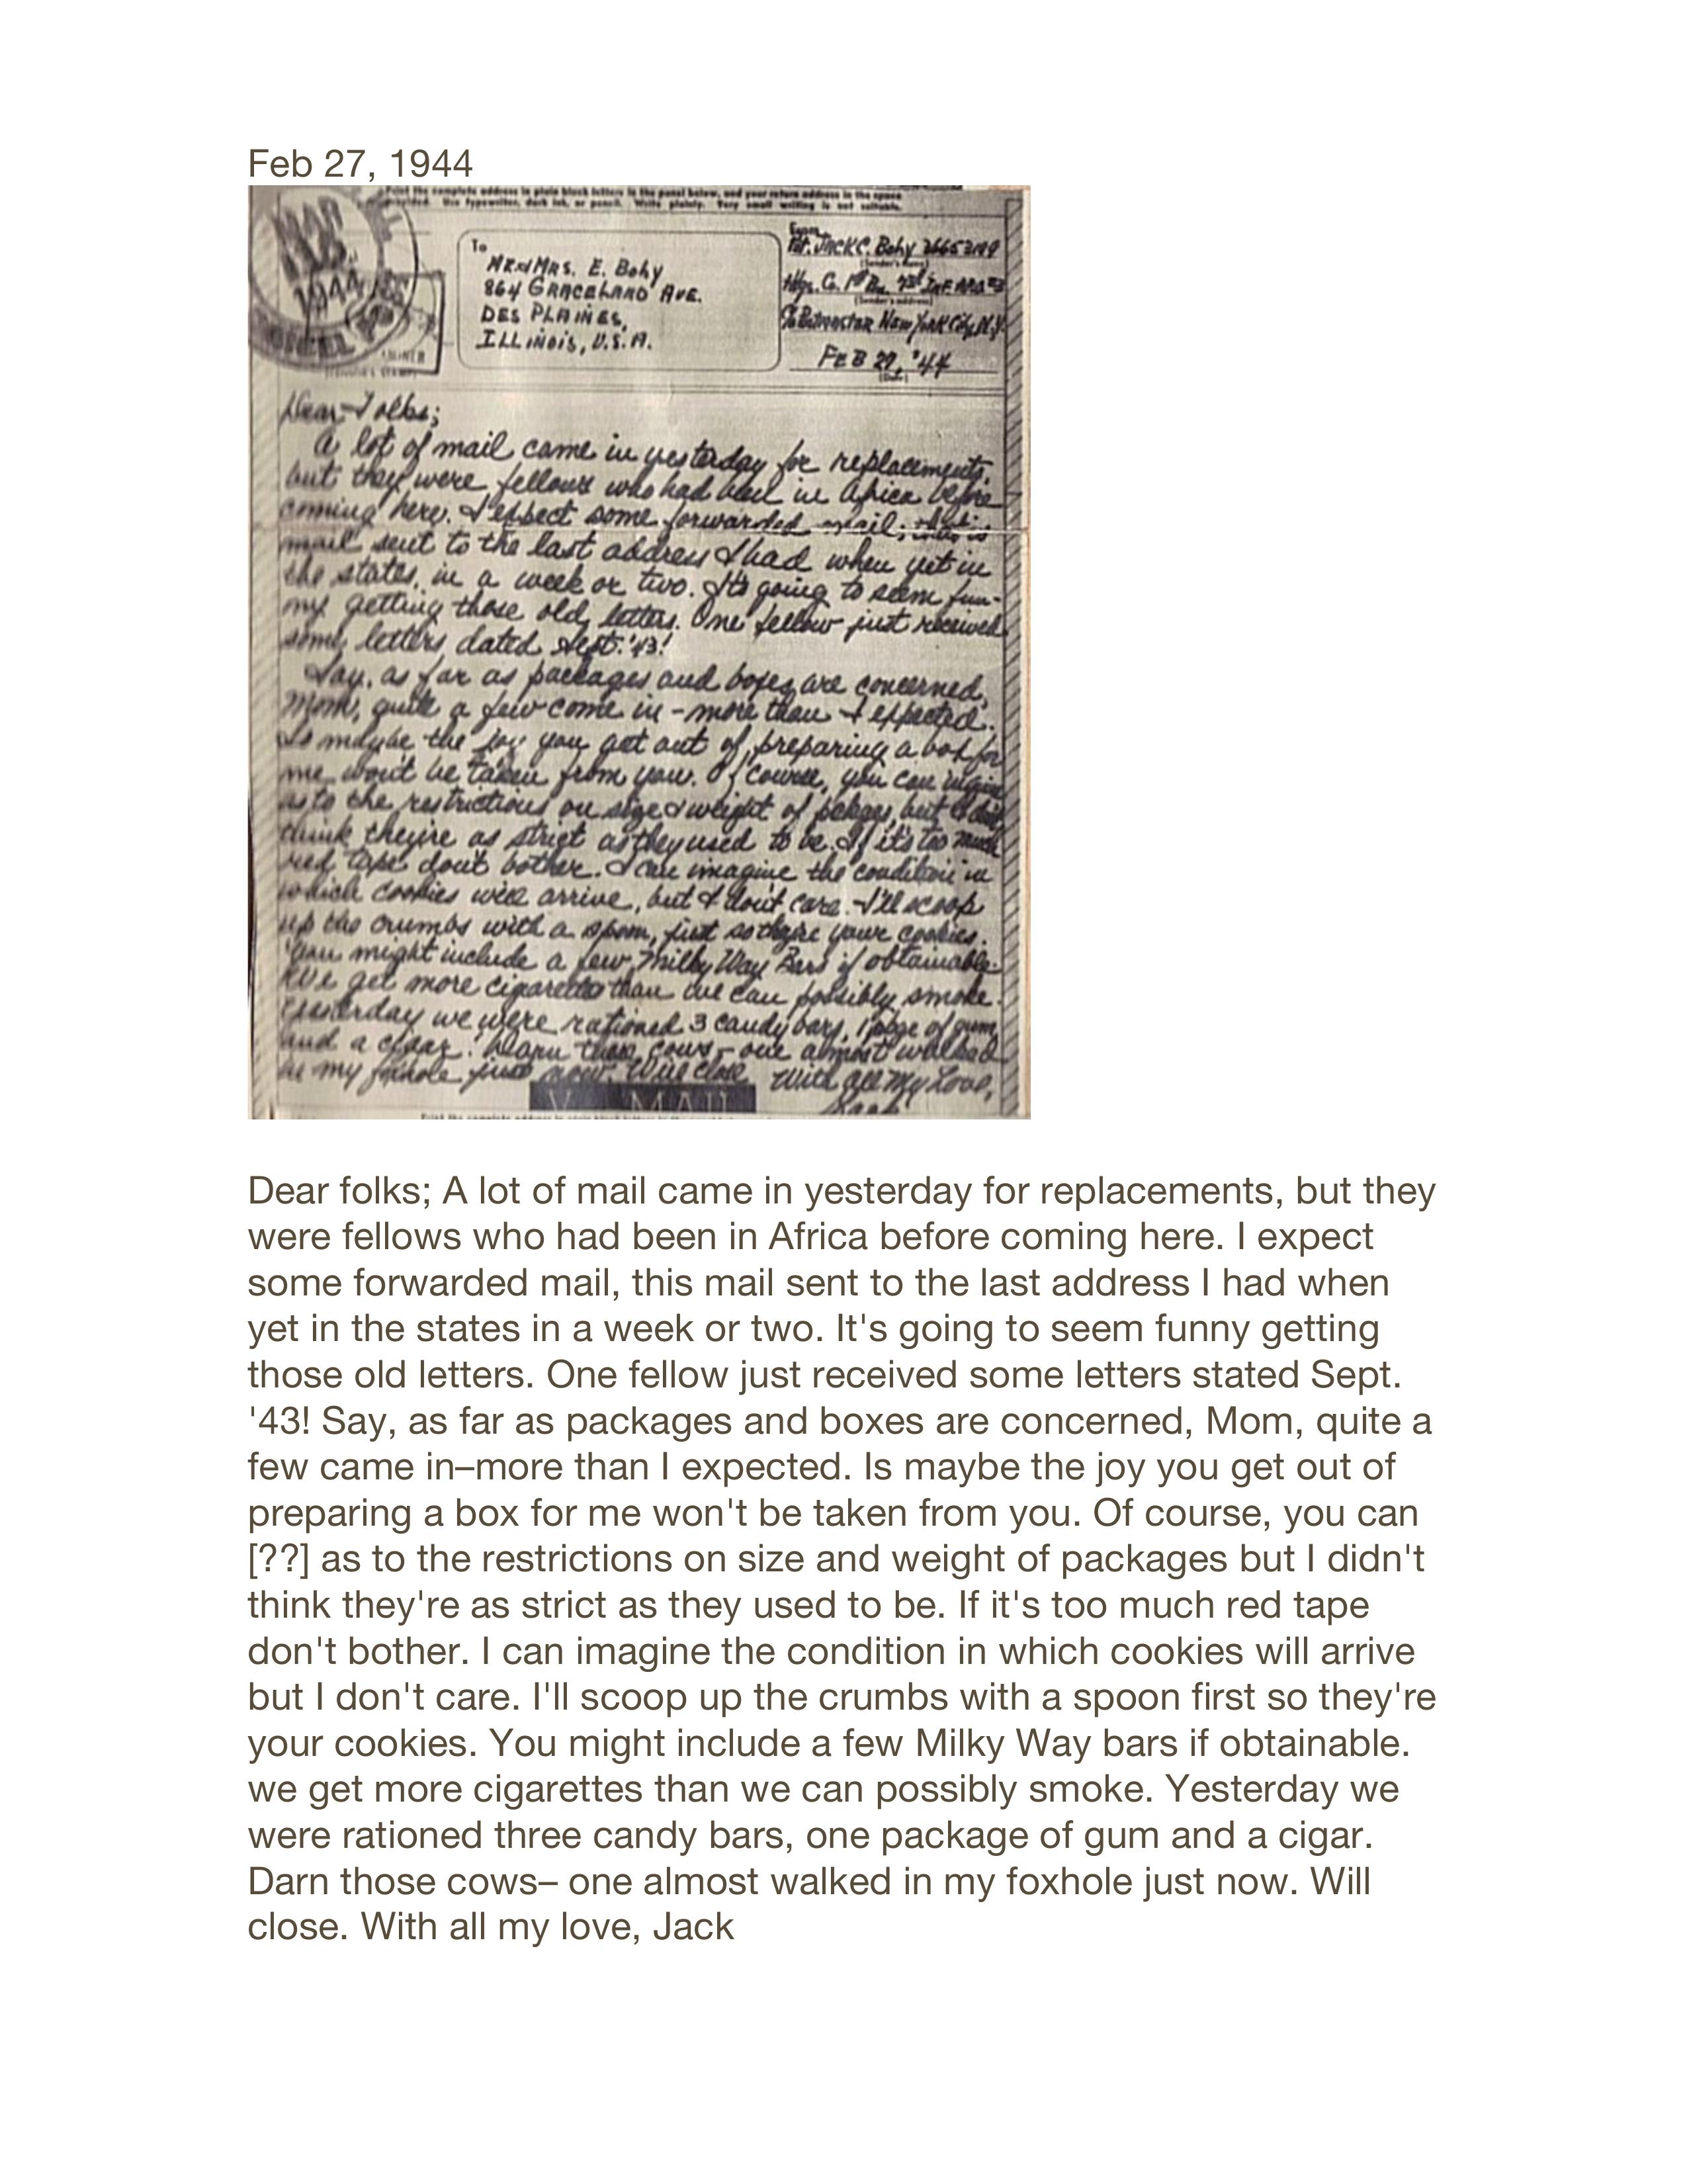 Feb 27, 1944
Print the complete address in plain block letters in the panel below, and your return address in the space
provided. Use typewriter, dark ink, or pencil. Write plainly. Very small writing is not suitable.
To
MR and MRS. E. Bohy
864 GRACELAND AVE.
DES PLAINES,
ILLINOIS, U.S.A.
From
Pvt. JACK C. Bohy
(Sender's name)
Hqs. Co. 1st Bn. Inf.
(Sender's address)
c/o Postmaster New York City, N.Y.
FEB 27, '44
(Date)
1944
Dear Folks;
A lot of mail came in yesterday for replacements,
but they were fellows who had been in Africa before
coming here. I expect some forwarded mail, that is
mail sent to the last address I had when yet in
the states, in a week or two. It's going to seem fun-
ny getting those old letters. One fellow just received
some letters dated Sept. '43!
Say, as far as packages and boxes are concerned,
Mom, quite a few come in - more than I expected.
So maybe the joy you get out of preparing a box for
me won't be taken from you. Of course, you can
as to the restrictions on size & weight of pckges, but I don't
think they're as strict as they used to be. If it's too much
red tape don't bother. I can imagine the condition in
which cookies will arrive, but I don't care. I'll scoop
up the crumbs with a spoon, just so they're your cookies.
You might include a few Milky Way Bars if obtainable.
We get more cigarettes than we can possibly smoke.
Yesterday we were rationed 3 candy bars, 1 pkge of gum,
and a cigar. Darn those cows - one almost walked
in my foxhole just now. Will close. With all My Love,
Jack
V MAIL
Dear folks; A lot of mail came in yesterday for replacements, but they
were fellows who had been in Africa before coming here. I expect
some forwarded mail, this mail sent to the last address I had when
yet in the states in a week or two. It's going to seem funny getting
those old letters. One fellow just received some letters stated Sept.
'43! Say, as far as packages and boxes are concerned, Mom, quite a
few came in–more than I expected. Is maybe the joy you get out of
preparing a box for me won't be taken from you. Of course, you can
[??] as to the restrictions on size and weight of packages but I didn't
think they're as strict as they used to be. If it's too much red tape
don't bother. I can imagine the condition in which cookies will arrive
but I don't care. I'll scoop up the crumbs with a spoon first so they're
your cookies. You might include a few Milky Way bars if obtainable.
we get more cigarettes than we can possibly smoke. Yesterday we
were rationed three candy bars, one package of gum and a cigar.
Darn those cows– one almost walked in my foxhole just now. Will
close. With all my love, Jack